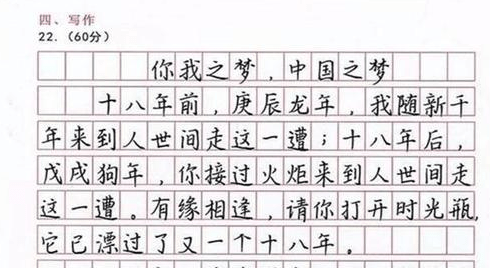 四、写作
22.（60分）
你我之梦，中国之梦
十八年前，庚辰龙年，我随新千
年来到人世间走这一遭；十八年后，
戊戌狗年，你接过火炬来到人世间走
这一遭。有缘相逢，请你打开时光瓶，
它已漂过了又一个十八年。